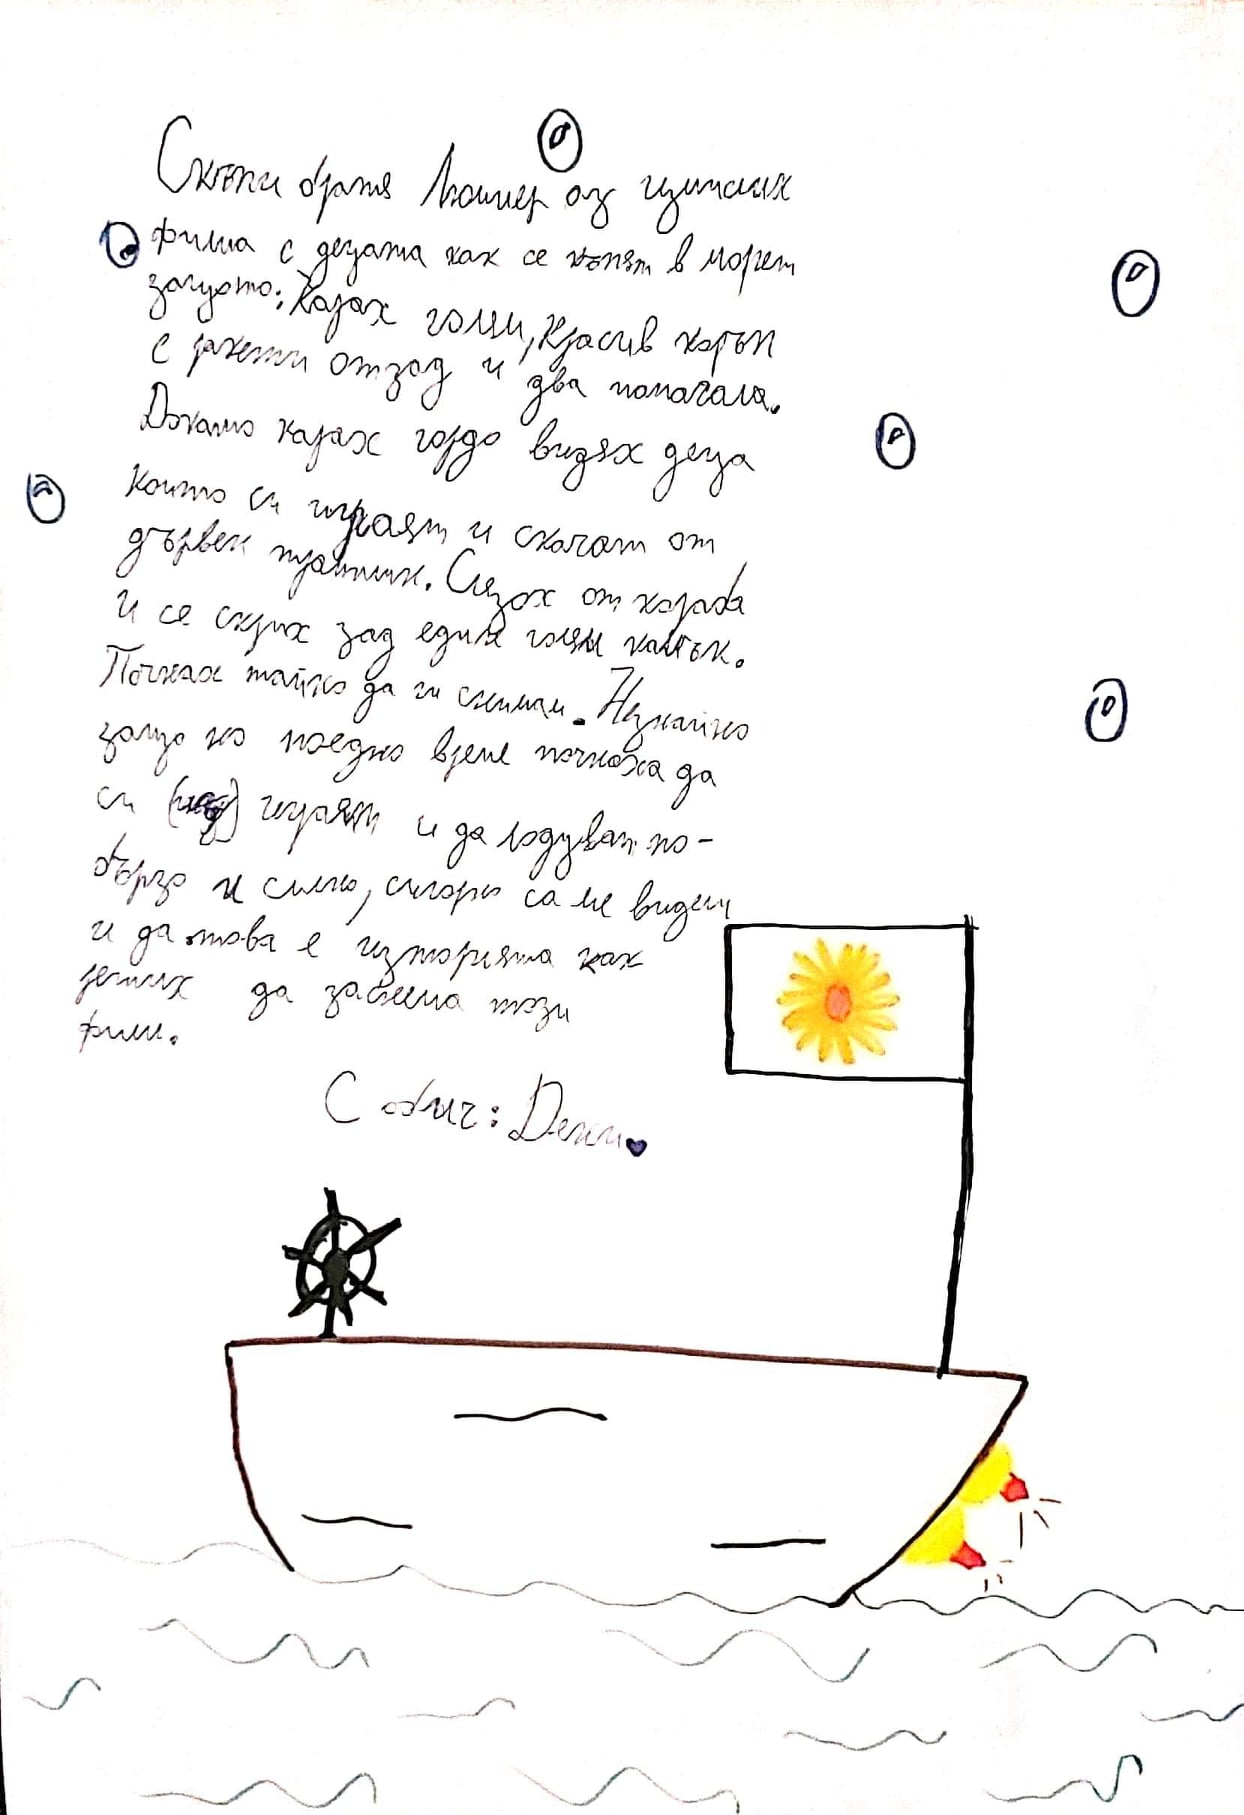 Скъпи братя Люмиер аз измислих
филма с децата как се къпят в морет
защото: Карах голям, красив кораб
с ракети отзад и два помагала.
Докато карах гордо видях деца
които си играят и скачат от
дървен трамплин. Слязох от кораба
и се скрих зад един голям камък.
Почнах тайно да ги снимам. Незнайно
защо но поедно време почнаха да
си играят и да лудуват по-
бързо и силно, сигорно са ме видели
и да това е изторията как
реших да заснема този
филм.
С обич: Дени